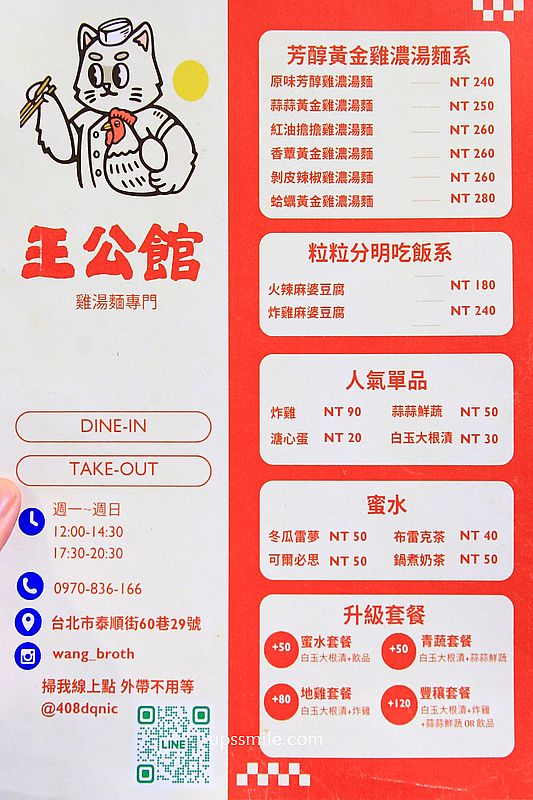 王公館
雞湯麵專門
DINE-IN
TAKE-OUT
週一~週日
12:00-14:30
17:30-20:30
0970-836-166
台北市泰順街60巷29號
wang_broth
掃我線上點 外帶不用等
@408dqnic
LINE
芳醇黃金雞濃湯麵系
原味芳醇雞濃湯麵 NT 240
蒜蒜黃金雞濃湯麵 NT 250
紅油擔擔雞濃湯麵 NT 260
香蕈黃金雞濃湯麵 NT 260
剝皮辣椒雞濃湯麵 NT 260
蛤蠣黃金雞濃湯麵 NT 280
粒粒分明吃飯系
火辣麻婆豆腐 NT 180
炸雞麻婆豆腐 NT 240
人氣單品
炸雞 NT 90 蒜蒜鮮蔬 NT 50
溏心蛋 NT 20 白玉大根漬 NT 30
蜜水
冬瓜蕾夢 NT 50 布雷克茶 NT 40
可爾必思 NT 50 鍋煮奶茶 NT 50
升級套餐
+50 蜜水套餐 +50 青蔬套餐
白玉大根漬+飲品 白玉大根漬+蒜蒜鮮蔬
+80 地雞套餐 +120 豐穰套餐
白玉大根漬+炸雞 白玉大根漬+炸雞
+蒜蒜鮮蔬 OR 飲品
upssmile.com